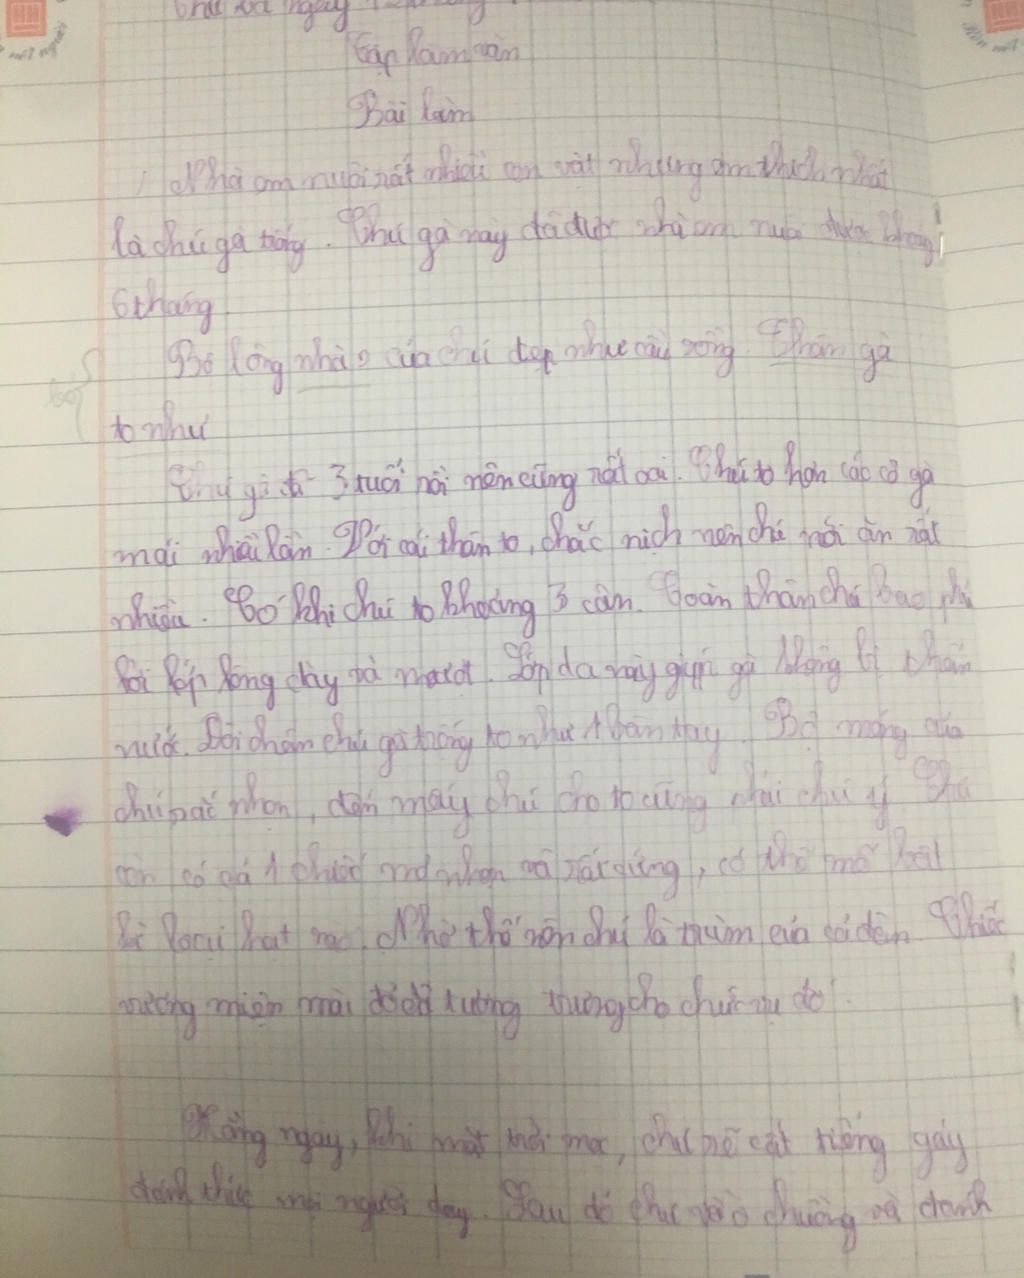 Tập làm văn
Bài làm
Nhà em nuôi rất nhiều con vật nhưng em thích nhất
là chú gà trống. Chú gà này đã được nhà em nuôi được khoảng
6 tháng
Bộ lông của chú đẹp như cầu vồng. Thân gà
to như
Chú gà 3 tuổi rồi nên cũng rất oai. Chú to hơn các cô gà
mái nhiều lần. Với cái thân to, chắc nịch nên chú mới ăn rất
nhiều. Có khi chú to khoảng 3 cân. Toàn thân chú bao phủ
bởi lớp lông dày và mượt. Lớp da này giúp gà không bị thấm
nước. Đôi chân chú gà trống to như 1 bàn tay. Bộ móng của
chú nhọn, đến mấy chú cho to cũng phải chú ý. Chú
còn có cả 1 chiếc mỏ nhọn và rất cứng, có thể mổ bất
kì loại hạt nào. Nhờ thế nên chú là trùm của cái đàn. Chiếc
vương miện mào đỏ để tượng trưng cho chức vụ đó.
Hằng ngày, khi mặt trời mọc, chú sẽ cất tiếng gáy
đánh thức mọi người dậy. Sau đó chú vào chuồng và đánh